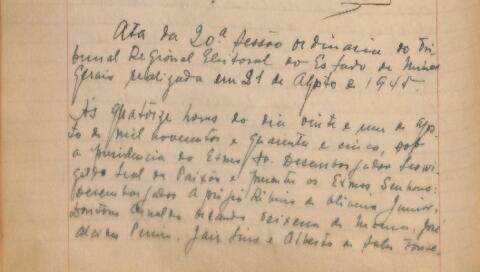 Ata da 20ª sessão ordinaria do Tri-
bunal Regional Eleitoral do Estado de Minas
Gerais realizada em 21 de Agosto de 1945.
Às quatorze horas do dia vinte e um de agos-
to de mil novecentos e quarenta e cinco, sob
a presidencia do Exmo Sr. Desembargador Leovi-
gildo Leal da Paixão e presentes os Exmos. Senhores:
Desembargadores Ribeiro de Oliveira Junior,
Doutores Orlando Teixeira de José
Alcides Pereira, Jair Lins e Alberto de Sales Fonse-